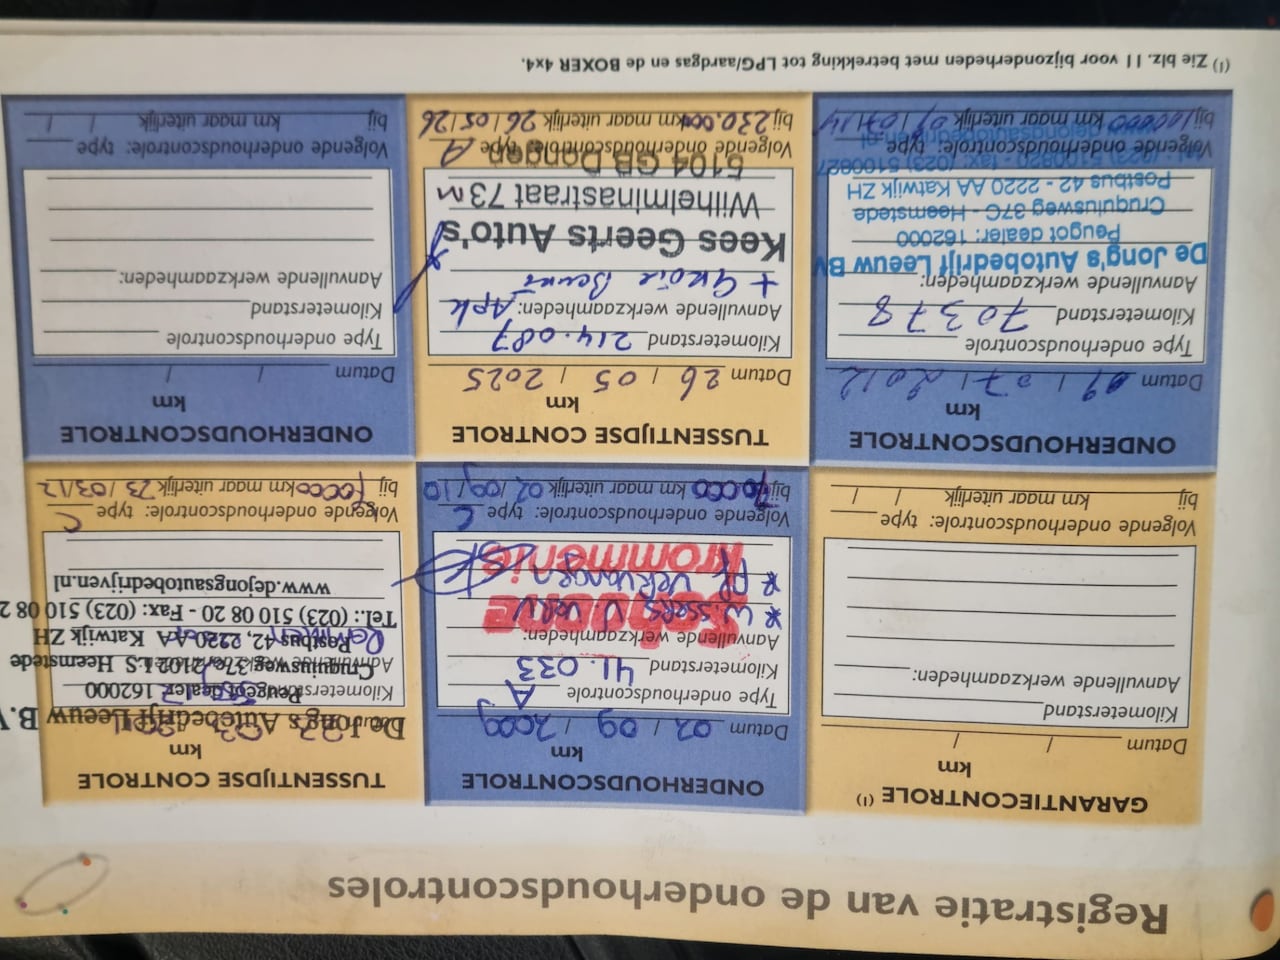 Registratie van de onderhoudscontroles
GARANTIECONTROLE (1)
km
Datum / /
Kilometerstand
Aanvullende werkzaamheden:
Volgende onderhoudscontrole: type
bij km maar uiterlijk / /
ONDERHOUDSCONTROLE
km
Datum 02 / 09 / 2009
Type onderhoudscontrole A
Kilometerstand 41.033
Aanvullende werkzaamheden:
* W.ssers V. Verv
* PF vervangen
Krommenie
Volgende onderhoudscontrole: type C
bij 70.000 km maar uiterlijk 02/09/10
TUSSENTIJDSE CONTROLE
km
De Jong's Autobedrijf Leeuw B.V
Datum
Peugeot dealer 162000
Kilometerstand
Cruquiusweg 37c, 2102 LS Heemstede
Aanvullende werkzaamheden:
Postbus 42, 2220 AA Katwijk ZH
Tel.: (023) 510 08 20 - Fax: (023) 510 08 2
www.dejongsautobedrijven.nl
Volgende onderhoudscontrole: type C
bij km maar uiterlijk 23/03/12
ONDERHOUDSCONTROLE
km
Datum 09 / 07 / 2012
Type onderhoudscontrole
Kilometerstand 70378
Aanvullende werkzaamheden:
De Jong's Autobedrijf Leeuw BV
Peugot dealer: 162000
Cruquiusweg 37C - Heemstede
Postbus 42 - 2220 AA Katwijk ZH
(023) 5100820 - fax: (023) 5100827
Volgende onderhoudscontrole: type
dejongsautobedrijven.nl
bij 100000 km maar uiterlijk 09/07/14
TUSSENTIJDSE CONTROLE
km
Datum 26 / 05 / 2025
Kilometerstand 214.087
Aanvullende werkzaamheden: Apk
+ Grote Beurt
Kees Geerts Auto's
Wilhelminastraat 73
5104 GB Dongen
Volgende onderhoudscontrole: type A
bij 230.000 km maar uiterlijk 26/05/26
ONDERHOUDSCONTROLE
km
Datum / /
Type onderhoudscontrole
Kilometerstand
Aanvullende werkzaamheden:
Volgende onderhoudscontrole: type
bij km maar uiterlijk / /
(1) Zie blz. 11 voor bijzonderheden met betrekking tot LPG/aardgas en de BOXER 4x4.